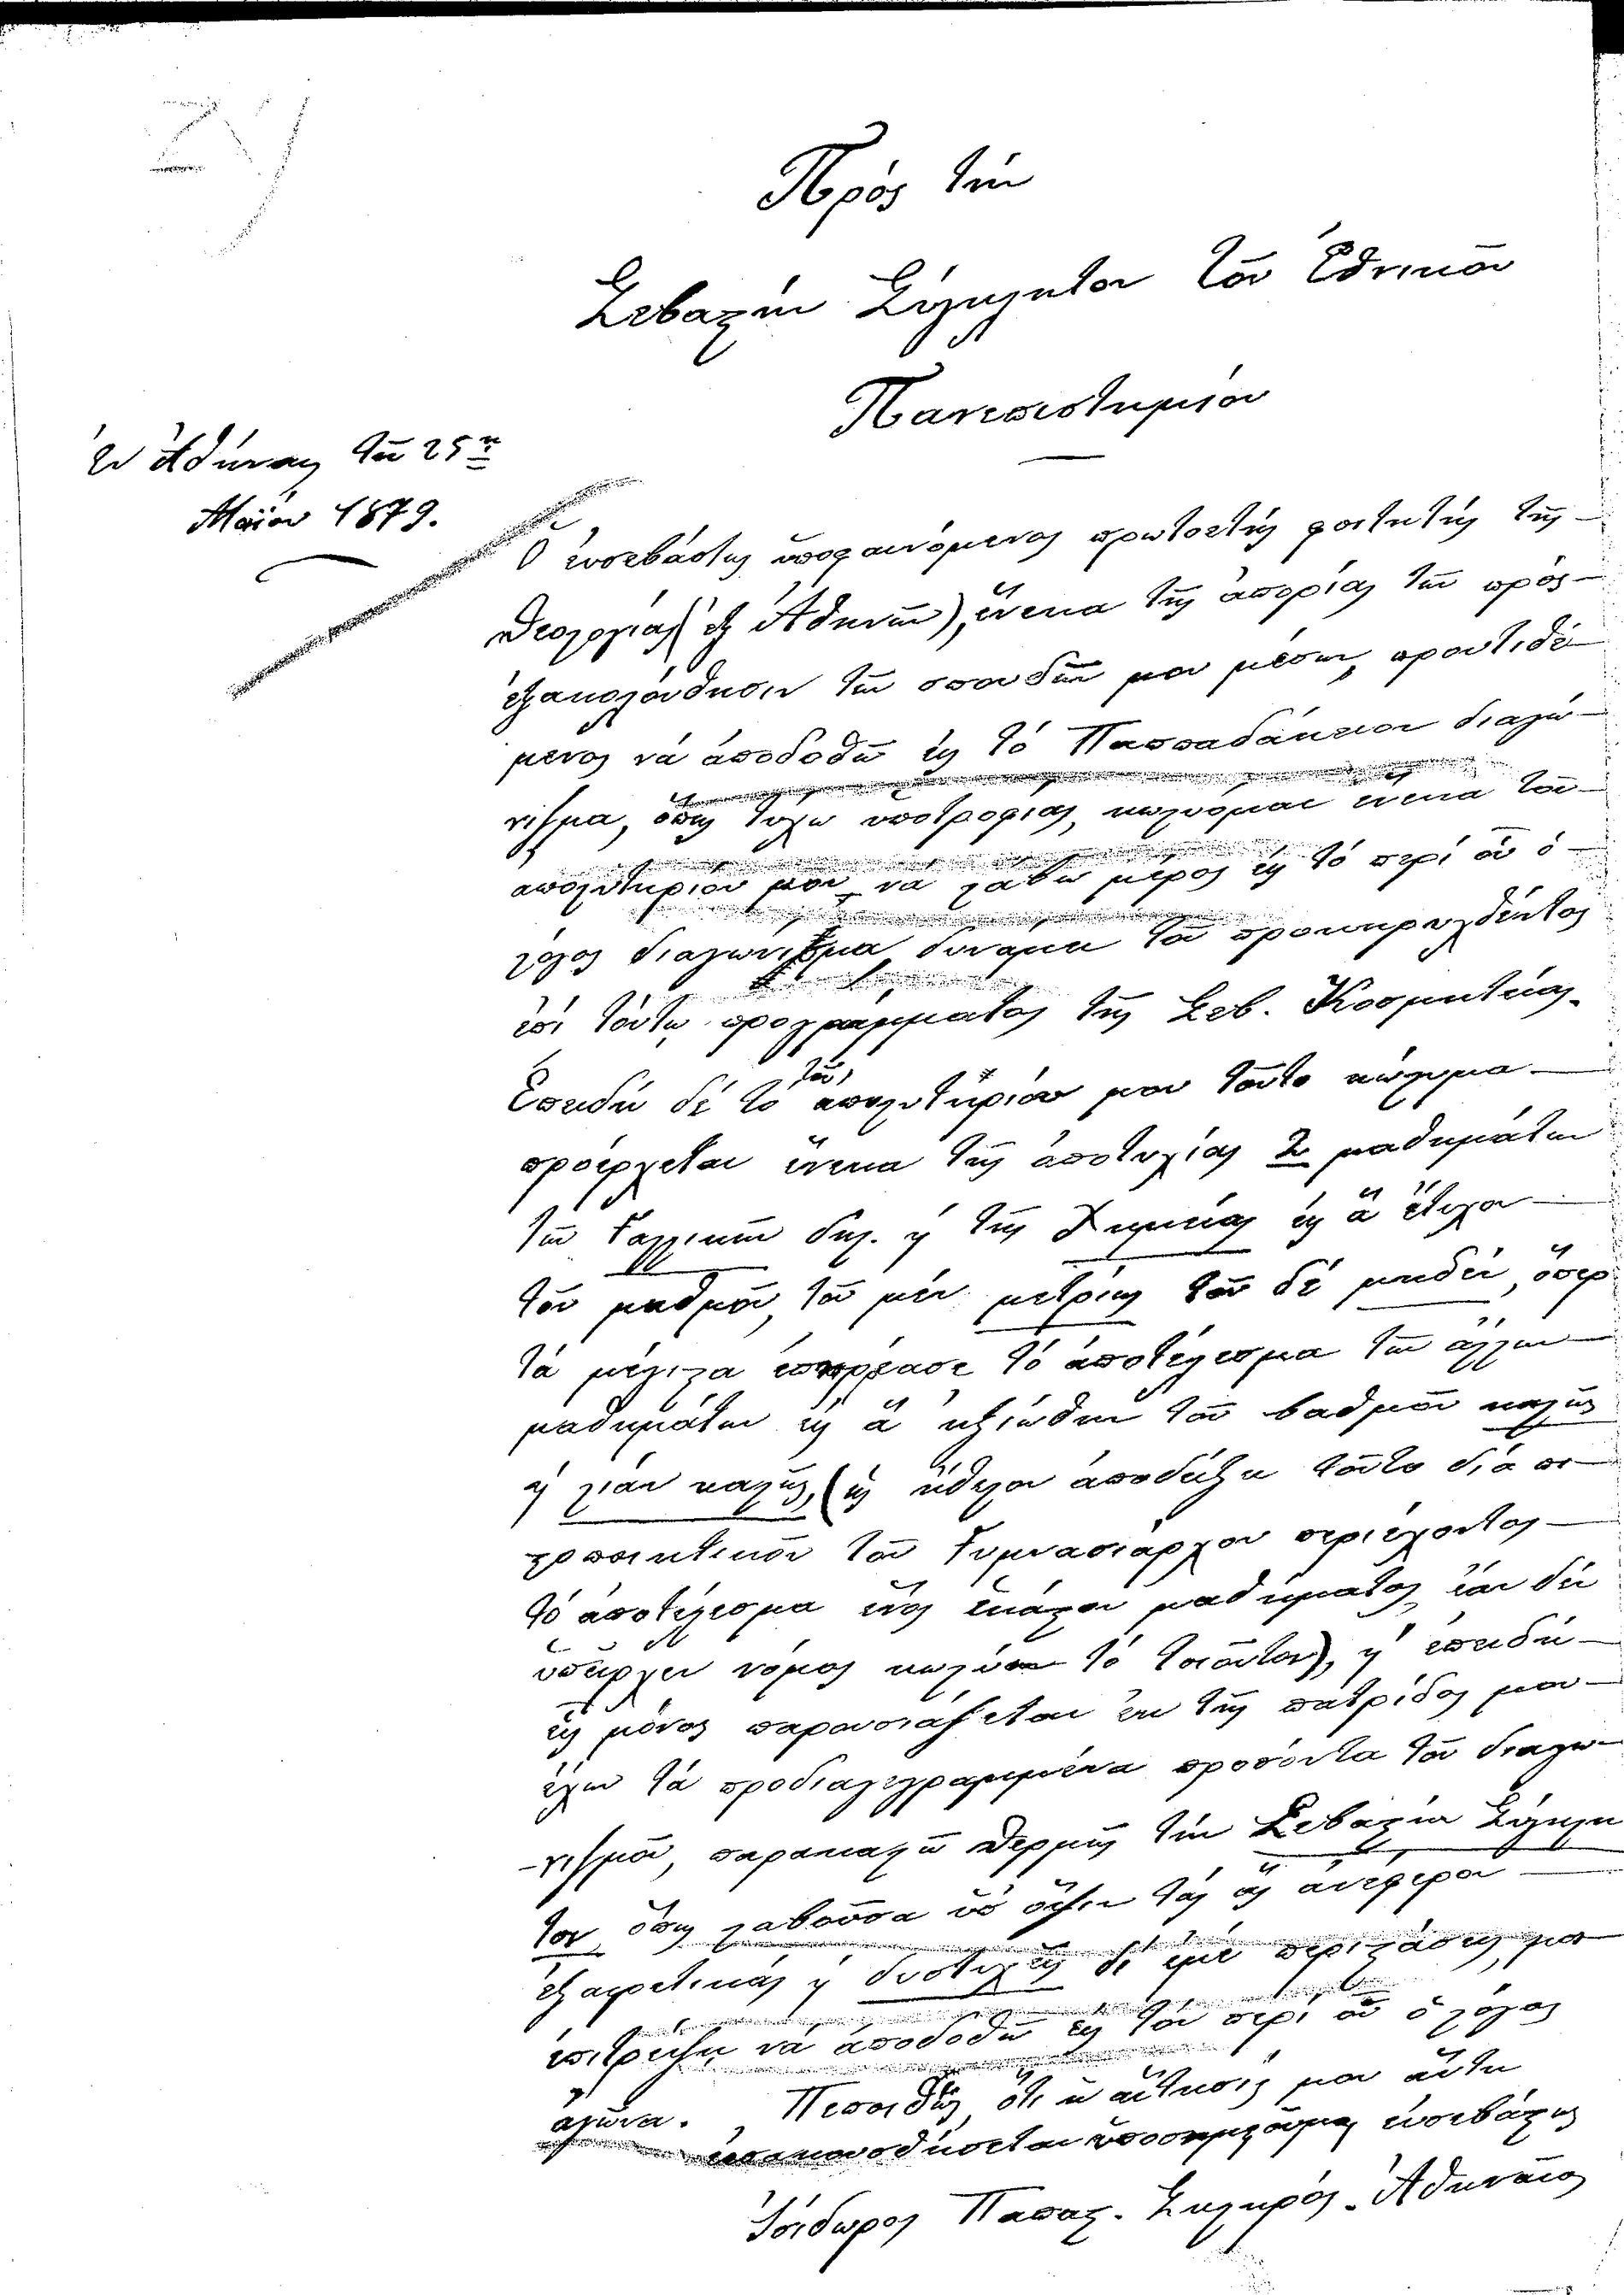 Πρός τήν
Σεβαστήν Σύγκλητον τοῦ Ἐθνικοῦ
Πανεπιστημίου
Ἐν Ἀθήναις τῇ 25ῃ
Μαΐου 1879.
Ὁ εὐσεβάστως ὑποφαινόμενος πρωτοετής φοιτητής τῆς
Θεολογίας (ἐξ Ἀθηνῶν), ἕνεκα τῆς ἀπορίας τῶν πρός
ἐξακολούθησιν τῶν σπουδῶν μου μέσων, προυτιθέ
μενος νά ἀποδοθῶ εἰς τό Παππαδάκειον διαγώ
νισμα, ὅπως τύχω ὑποτροφίας, κωλύομαι ἕνεκα τοῦ
ἀπολυτηρίου μου νά λάβω μέρος εἰς τό περί οὗ ὁ
λόγος διαγώνισμα δυνάμει τοῦ προκηρυχθέντος
ἐπί τούτῳ προγράμματος τῆς Σεβ. Κοσμητείας.
Ἐπειδή δέ τό τοῦ ἀπολυτηρίου μου τοῦτο κώλυμα
προέρχεται ἕνεκα τῆς ἀποτυχίας 2 μαθημάτων
τῶν Γαλλικῶν δηλ. ἤ τῆς Χημείας εἰς ἅ ἔτυχον
τοῦ βαθμοῦ, τοῦ μέν μετρίως τοῦ δέ μηδέν, ὅπερ
τά μέγιστα ἐπηρέασε τό ἀποτέλεσμα τῶν ἄλλων
μαθημάτων εἰς ἅ ἠξιώθην τοῦ βαθμοῦ καλῶς
ἤ λίαν καλῶς, (ὡς ἤθελον ἀποδείξει τοῦτο διά πι
στοποιητικοῦ τοῦ Γυμνασιάρχου περιέχοντος
τό ἀποτέλεσμα ἑνός ἑκάστου μαθήματος, ἐάν δέν
ὑπῆρχεν νόμος κωλύων τό τοιοῦτον), ἤ ἐπειδή
εἷς μόνος παρουσιάζεται ἐκ τῆς πατρίδος μου
ἔχων τά προδιαγεγραμμένα προσόντα τοῦ διαγω
-νισμοῦ, παρακαλῶ θερμῶς τήν Σεβαστήν Σύγκλη
τον, ὅπως λαβοῦσα ὑπ' ὄψιν τάς ἅς ἀνέφερον
ἐξαιρετικάς ἤ δυστυχεῖς δι' ἐμέ περιστάσεις, μοι
ἐπιτρέψῃ νά ἀποδοθῶ εἰς τόν περί οὗ ὁ λόγος
ἀγῶνα. Πεποιθώς, ὅτι ἡ αἴτησίς μου αὕτη
εἰσακουσθήσεται ὑποσημειοῦμαι εὐσεβάστως
Ἰσίδωρος Παπασ. Σκληρός. Ἀθηναῖος